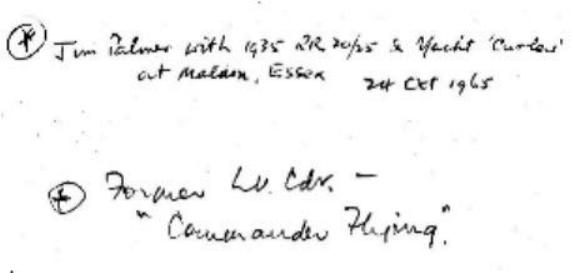 * Jim Palmer with 1935 RR 20/25 & Yacht 'Curlew'
at Maldon, Essex 24 Oct 1965
+ Former Lt. Cdr. –
"Commander Flying".